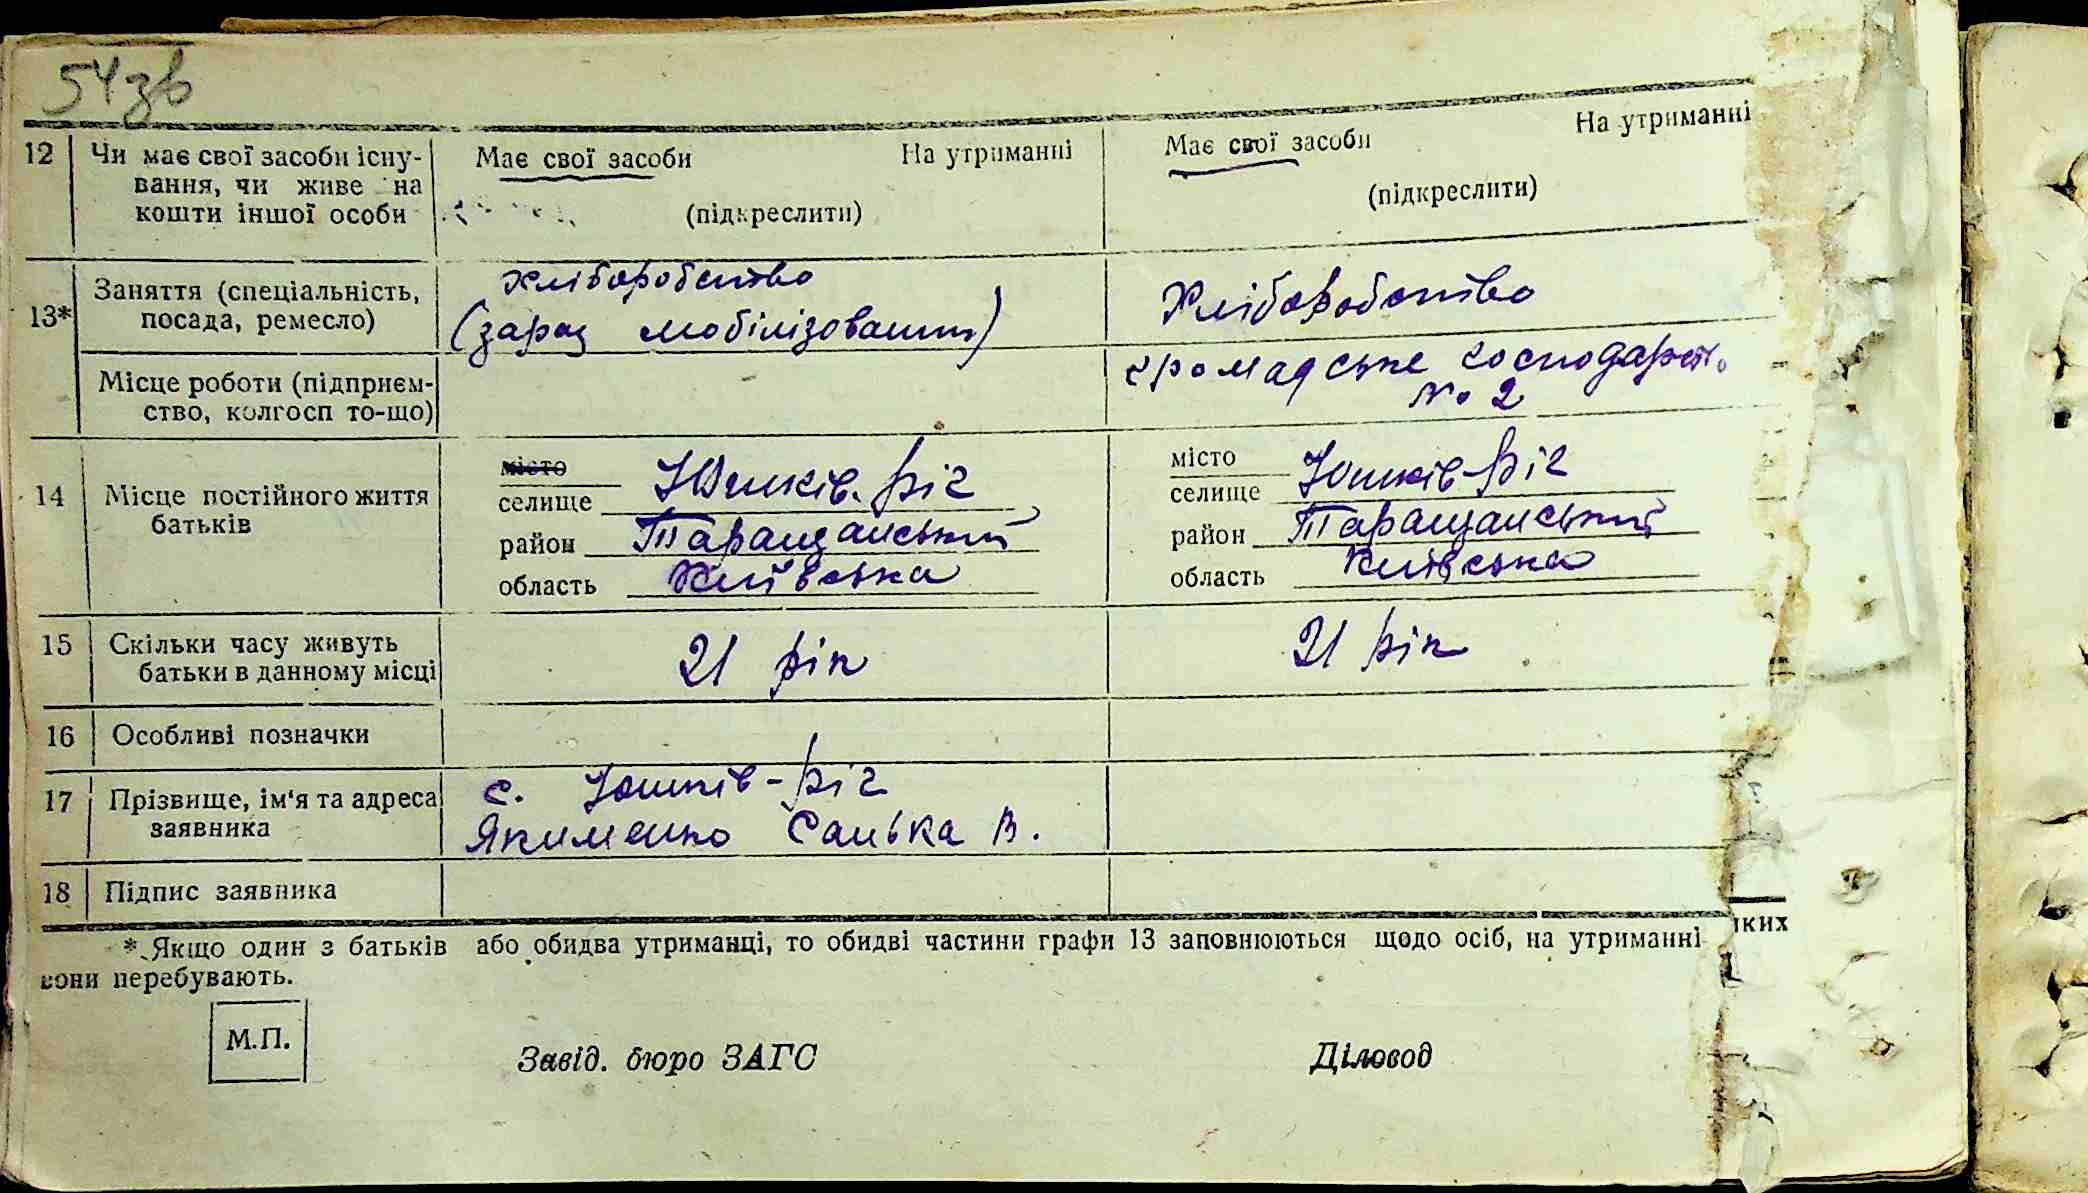 54зв
12 Чи має свої засоби існу-
вання, чи живе на
кошти іншої особи
Має свої засоби На утриманні
(підкреслити)
Має свої засоби На утриманні
(підкреслити)
13* Заняття (спеціальність,
посада, ремесло)
хліборобство
(зараз мобілізований)
Хліборобство
Місце роботи (підприєм-
ство, колгосп то-що)
громадське господарство
№ 2
14 Місце постійного життя
батьків
місто
селище Юшків-Ріг
район Таращанський
область Київська
місто
селище Юшків-Ріг
район Таращанський
область Київська
15 Скільки часу живуть
батьки в данному місці
21 рік
21 рік
16 Особливі позначки
17 Прізвище, ім'я та адреса
заявника
с. Юшків-Ріг
Якименко Санька В.
18 Підпис заявника
* Якщо один з батьків або обидва утриманці, то обидві частини графи 13 заповнюються щодо осіб, на утриманні яких
вони перебувають.
М.П.
Завід. бюро ЗАГС
Діловод